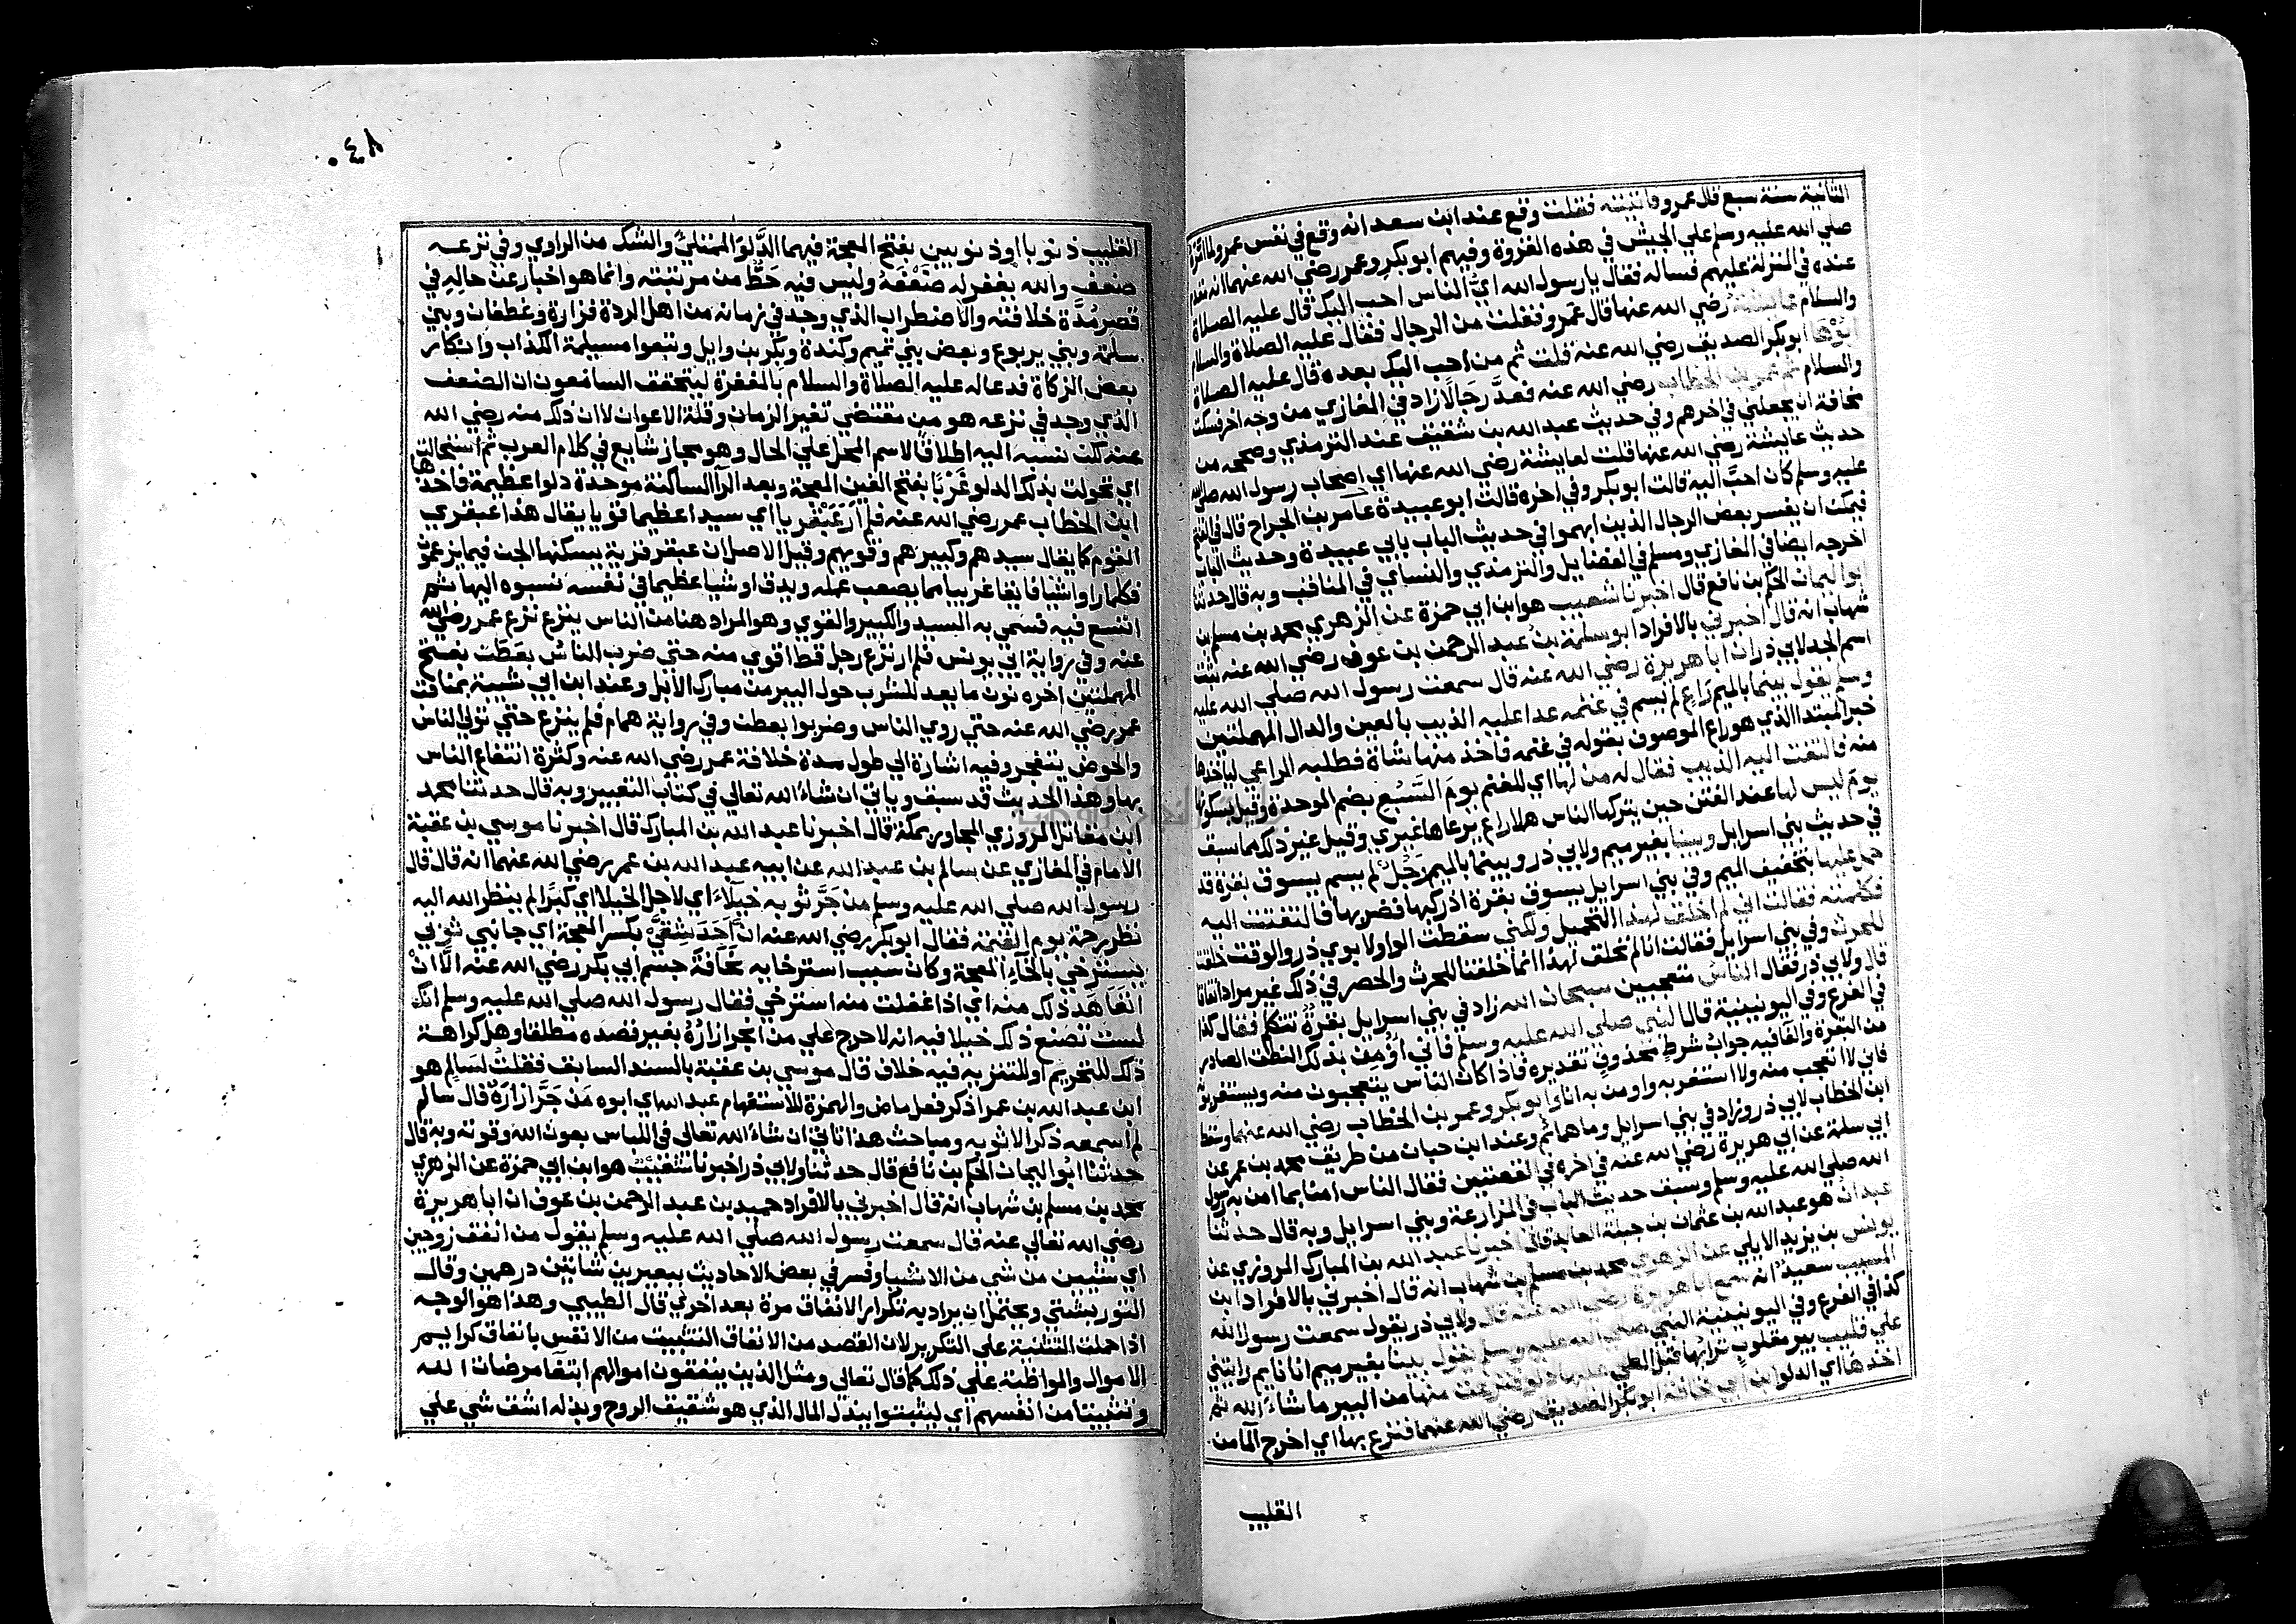 الثانية سنة سبع قال عمرو فاتيته فقلت وقع عند ابن سعد انه وقع في نفس عمرو لما امره
صلي الله عليه وسلم علي الجيش في هذه الغزوة وفيهم ابو بكر وعمر رضي الله عنهما انه مقدم
عنده في المنزلة عليهم فساله فقال يا رسول الله اي الناس احب اليك قال عليه الصلاة
والسلام عايشة رضي الله عنها قال عمرو فقلت من الرجال فقال عليه الصلاة والسلام
ابوها ابو بكر الصديق رضي الله عنه قلت ثم من احب اليك بعده قال عليه الصلاة
والسلام ثم عمر بن الخطاب رضي الله عنه فعدَّ رجالا زاد في المغازي من وجه اخر فسكت
مخافة ان يجعلني في اخرهم وفي حديث عبد الله بن شقيق عند الترمذي وصححه من
حديث عايشة رضي الله عنها قلت لعايشة رضي الله عنها اي اصحاب رسول الله صلي الله
عليه وسلم كان احبَّ اليه قالت ابو بكر وفي اخره قالت ابو عبيدة عامر بن الجراح قال في الفتح
فيمكن ان يفسر بعض الرجال الذين ابهموا في حديث الباب بابي عبيدة وحديث الباب
اخرجه ايضا في المغازي ومسلم في الفضايل والترمذي والنساي في المناقب وبه قال حدثنا
ابو اليمان الحكم بن نافع قال اخبرنا شعيب هو ابن ابي حمزة عن الزهري محمد بن مسلم بن
شهاب انه قال اخبرني بالافراد ابو سلمة بن عبد الرحمن بن عوف رضي الله عنه ثبت
اسم الجد لابي ذر ان ابا هريرة رضي الله عنه قال سمعت رسول الله صلي الله عليه
وسلم يقول بينما بالميم راعٍ لم يسم في غنمه عدا عليه الذيب بالعين والدال المهملتين
خبر المبتدا الذي هو راع الموصوف بقوله في غنمه فاخذ منها شاة فطلبه الراعي لياخذها
منه فالتفت اليه الذيب فقال له من لها اي للغنم يومَ السَّبُع بضم الموحدة وقيل بسكونها
يوم ليس لها عند الفتن حين يتركها الناس هلا راع يرعاها غيري وقيل غير ذلك مما سبق
في حديث بني اسرايل وبينا بغير ميم ولابي ذر وبينما بالميم رَجُلٌ لم يسم يسوق بقرة قد
حمل عليها بتخفيف الميم وفي بني اسرايل يسوق بقرة اذ ركبها فضربها فالتفتت اليه
فكلمته فقالت اني لم اخلق لهذا التحميل ولكني سقطت الواو لابوي ذر والوقت خلقت
للحرث وفي بني اسرايل فقالت انا لم نخلق لهذا انما خلقنا للحرث والحصر في ذلك غير مراد اتفاقا
قال ولابي ذر فقال الناس متعجبين سبحان الله زاد في بني اسرايل بقرةٌ تتكلم فقال كذا
في الفرع وفي اليونينية قال النبي صلي الله عليه وسلم فاني اُؤمِن بذلك النطق الصادر
من البقرة والفا فيه جواب شرطٍ محذوفٍ تقديره فاذا كان الناس يتعجبون منه ويستغربونه
فاني لا اتعجب منه ولا استغربه واومن به انا وابو بكر وعمر بن الخطاب رضي الله عنهما وسقط
ابن الخطاب لابي ذر وزاد في بني اسرايل وما هما ثَم وعند ابن حبان من طريق محمد بن عمر عن
ابي سلمة عن ابي هريرة رضي الله عنه في اخره في القصتين فقال الناس امنا بما امن به رسول
الله صلي الله عليه وسلم وسبق حديث الباب في المزارعة وبني اسرايل وبه قال حدثنا
عبدان هو عبد الله بن عثمان بن جبلة العابد قال اخبرنا عبد الله بن المبارك المروزي عن
يونس بن يزيد الايلي عن الزهري محمد بن مسلم بن شهاب انه قال اخبرني بالافراد ابن
المسيب سعيد انه سمع ابا هريرة رضي الله عنه قال ولابي ذر يقول سمعت رسول الله
كذا في الفرع وفي اليونينية النبي صلي الله عليه وسلم يقول بينا بغير ميم انا نايم رايتني
علي قليب بير مقلوب ترابها قبل الطي عليها دلو فنزعت منها من البير ما شاء الله ثم
اخذها اي الدلو ابن ابي قحافة ابو بكر الصديق رضي الله عنهما فنزع بها اي اخرج الما من
القليب
٠٤٨
القليب ذنوبا او ذنوبين بفتح المعجمة فيهما الدَّلو الممتلئ والشك من الراوي وفي نزعه
ضعف والله يغفر له ضَعْفَهُ وليس فيه حَطٌّ من مرتبته وانما هو اخبار عن حاله في
قصر مُدَّة خلافته والاضطراب الذي وجد في زمانه من اهل الردة فزارة وغطفان وبني
سلمة وبني يربوع وبعض بني تميم وكندة وبكر بن وايل وتبعوا مسيلمة الكذاب وانكار
بعض الزكاة فدعا له عليه الصلاة والسلام بالمغفرة ليتحقق السامعون ان الضعف
الذي وجد في نزعه هو من مقتضي تغير الزمان وقلة الاعوان لا ان ذلك منه رضي الله
عنه لكن نسبه اليه اطلاقا لاسم المحل علي الحال وهو مجاز شايع في كلام العرب ثم استحالت
اي تحولت بذلك الدلو غَرْبًا بفتح الغين المعجمة وبعد الرآ الساكنة موحدة دلوا عظيمة فاخذها
ابن الخطاب عمر رضي الله عنه فلم اَرَ عَبْقَريا اي سيدا عظيما قويا يقال هذا عبقري
القوم كما يقال سيدهم وكبيرهم وقويهم وقيل الاصل ان عبقر قرية يسكنها الجن فيما يزعمون
فكلما راوا شيا فايقا غريبا مما يصعب عمله ويدق او شيا عظيما في نفسه نسبوه اليها ثم
اتسع فيه فسمي به السيد والكبير والقوي وهو المراد هنا من الناس ينزع نزع عمر رضي الله
عنه وفي رواية ابي يونس فلم ار نزع رجل قط اقوي منه حتي ضرب الناس بعَطَن بفتح
المهملتين اخره نون ما يعد للشرب حول البير من مبارك الابل وعند ابن ابي شيبة بمناقب
عمر رضي الله عنه حتي روي الناس وضربوا بعطن وفي رواية همام فلم ينزع حتي تولي الناس
والحوض يتفجر وفيه اشارة الي طول مدة خلافة عمر رضي الله عنه وكثرة انتفاع الناس
بها وهذا الحديث قد سبق وياتي ان شاء الله تعالي في كتاب التعبير وبه قال حدثنا محمد
ابن مقاتل المروزي المجاور بمكة قال اخبرنا عبد الله بن المبارك قال اخبرنا موسي بن عقبة
الامام في المغازي عن سالم بن عبد الله عن ابيه عبد الله بن عمر رضي الله عنهما انه قال قال
رسول الله صلي الله عليه وسلم من جَرَّ ثوبه خيلاءَ اي لاجل الخيلا اي كبرًا لم ينظر الله اليه
نظر رحمة يوم القيمة فقال ابو بكر رضي الله عنه ان اَحَدَ شِقَّيَّ بكسر المعجمة اي جانبي ثوبي
يسترخي بالخاء المعجمة وكان سبب استرخايه نَحَافَة جسم ابي بكر رضي الله عنه الا ان
اتعَاهَد ذلك منه اي اذا غفلت عنه استرخي فقال رسول الله صلي الله عليه وسلم انك
لست تصنع ذلك خيلا فيه انه لا حرج علي من انجر ازارُهُ بغير قصده مطلقا وهل كراهة
ذلك للتحريم او للتنزيه فيه خلاف قال موسي بن عقبة بالسند السابق فقلتُ لسَالِم هو
ابن عبد الله بن عمر اذكر فعل ماض والهمزة للاستفهام عبد الله اي ابوه مَن جَرَّ ازارَهُ قال سالم
لم اسمعه ذكر الا ثوبه ومباحث هذا تاتي ان شاء الله تعالي في اللباس بعون الله وقوته وبه قال
حدثنا ابُو اليمان الحكم بن نافع قال حدثنا ولابي ذر اخبرنا شعَيْبٌ هو ابن ابي حمزة عن الزهري
محمد بن مسلم بن شهاب انه قال اخبرني بالافراد حميد بن عبد الرحمن بن عوف ان ابا هريرة
رضي الله تعالي عنه قال سمعت رسول الله صلي الله عليه وسلم يقول من انفق زوجين
اي شيئين من شي من الاشيا وفسر في بعض الاحاديث ببعيرين شاتين درهمين وقال
التوربشتي ويحتمل ان يراد به تكرار الانفاق مرة بعد اخري قال الطيبي وهذا هو الوجه
اذا حملت التثنية علي التكرير لان القصد من الانفاق التثبيت من الانفس بانفاق كرايم
الاموال والمواظبة علي ذلك كما قال تعالي ومثل الذين ينفقون اموالهم ابتغا مرضات الله
وتثبيتا من انفسهم اي ليثبتوا ببذل المال الذي هو شقيق الروح وبذله اشق شي علي